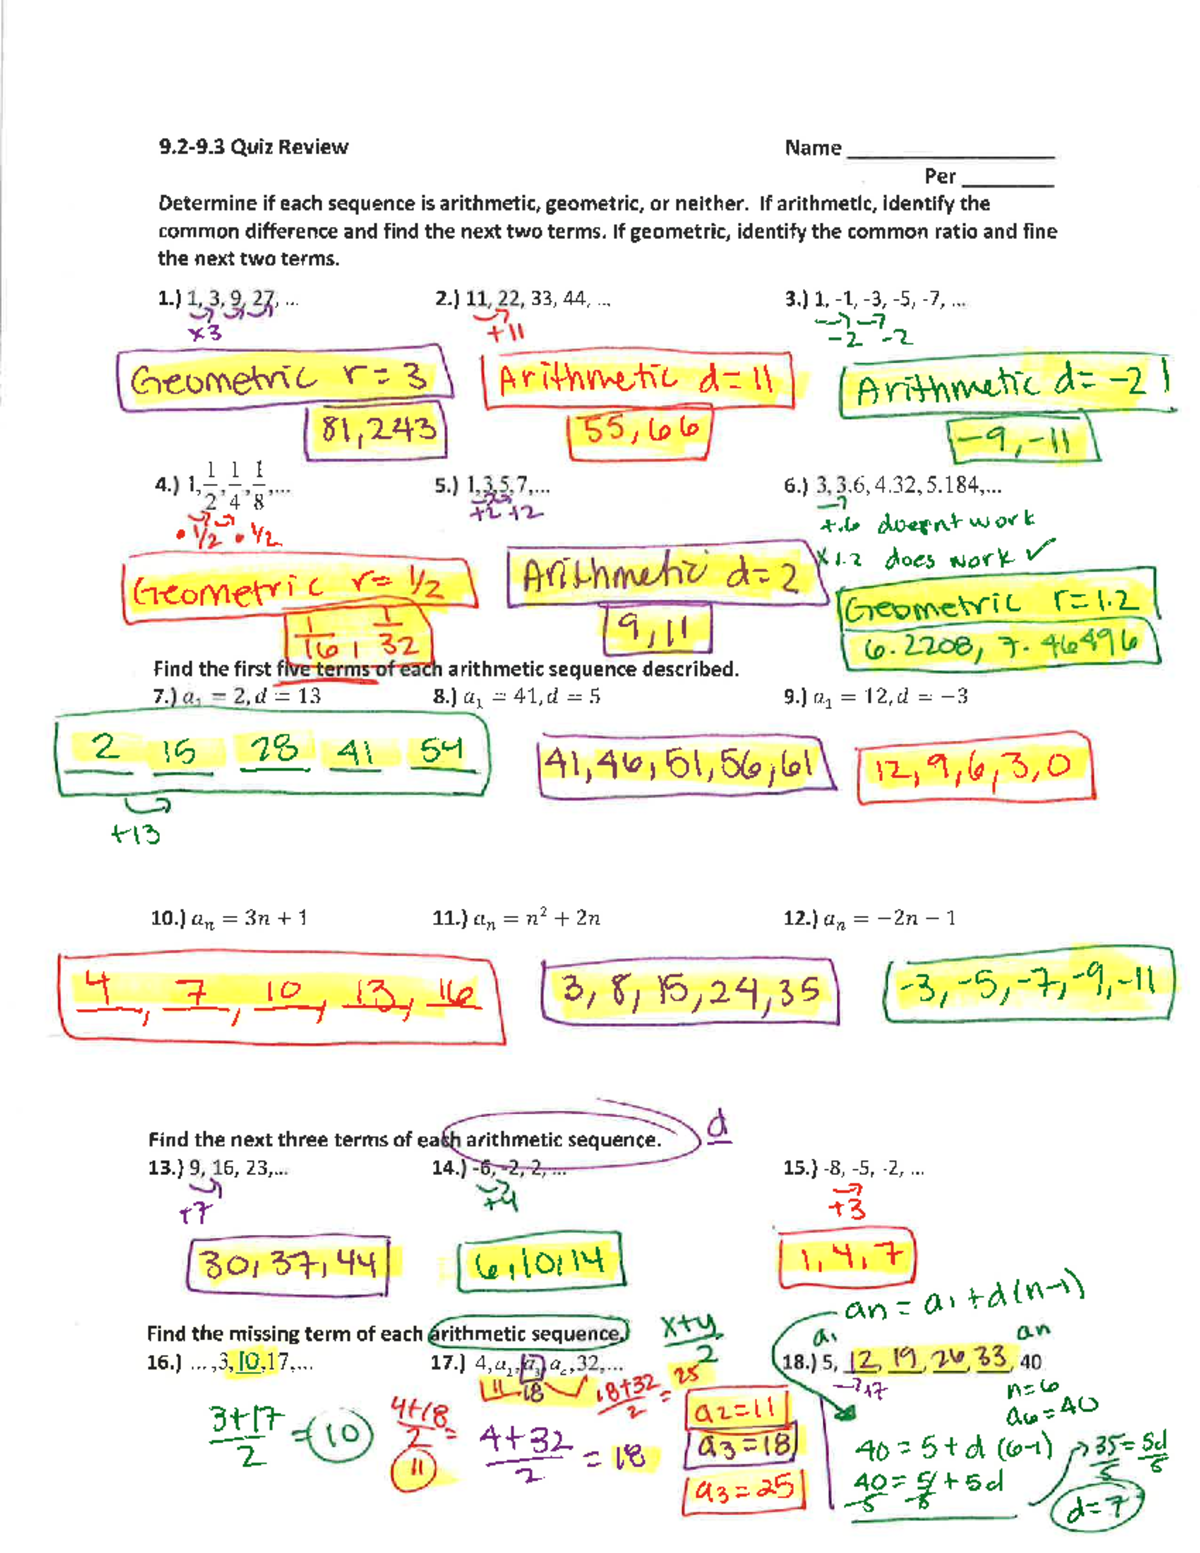 9.2-9.3 Quiz Review Name
Per
Determine if each sequence is arithmetic, geometric, or neither. If arithmetic, identify the
common difference and find the next two terms. If geometric, identify the common ratio and fine
the next two terms.
1.) 1, 3, 9, 27, ... 2.) 11, 22, 33, 44, ... 3.) 1, -1, -3, -5, -7, ...
x3 +11 -2 -2
Geometric r = 3 Arithmetic d = 11 Arithmetic d = -2
81, 243 55, 66 -9, -11
4.) 1, 1/2, 1/4, 1/8, ... 5.) 1,3,5,7,... 6.) 3, 3.6, 4.32, 5.184,...
• 1/2 • 1/2 +2 +2 +.6 doesnt work
x1.2 does work ✓
Geometric r = 1/2 Arithmetic d = 2 Geometric r = 1.2
1/16, 1/32 9, 11 6.2208, 7.46496
Find the first five terms of each arithmetic sequence described.
7.) a₁ = 2, d = 13 8.) a₁ = 41, d = 5 9.) a₁ = 12, d = −3
2 15 28 41 54 41, 46, 51, 56, 61 12, 9, 6, 3, 0
+13
10.) aₙ = 3n + 1 11.) aₙ = n² + 2n 12.) aₙ = −2n − 1
4, 7, 10, 13, 16 3, 8, 15, 24, 35 -3, -5, -7, -9, -11
Find the next three terms of each arithmetic sequence. d
13.) 9, 16, 23,... 14.) -6, -2, 2, ... 15.) -8, -5, -2, ...
+7 +4 +3
30, 37, 44 6, 10, 14 1, 4, 7
an = a1 + d(n-1)
Find the missing term of each arithmetic sequence. x+y/2 a1 an
16.) ...,3,10,17,... 17.) 4,a₂,a₃,a꜀,32,... 18.) 5, 12, 19, 26, 33, 40
11 18 18+32/2 = 25 +7 n=6
a6=40
3+17/2 = 10 4+18/2 = 11 4+32/2 = 18 a2=11
a3=18 40 = 5 + d (6-1) 35/5 = 5d/5
a3=25 40 = 5 + 5d
-5 -5 d=7